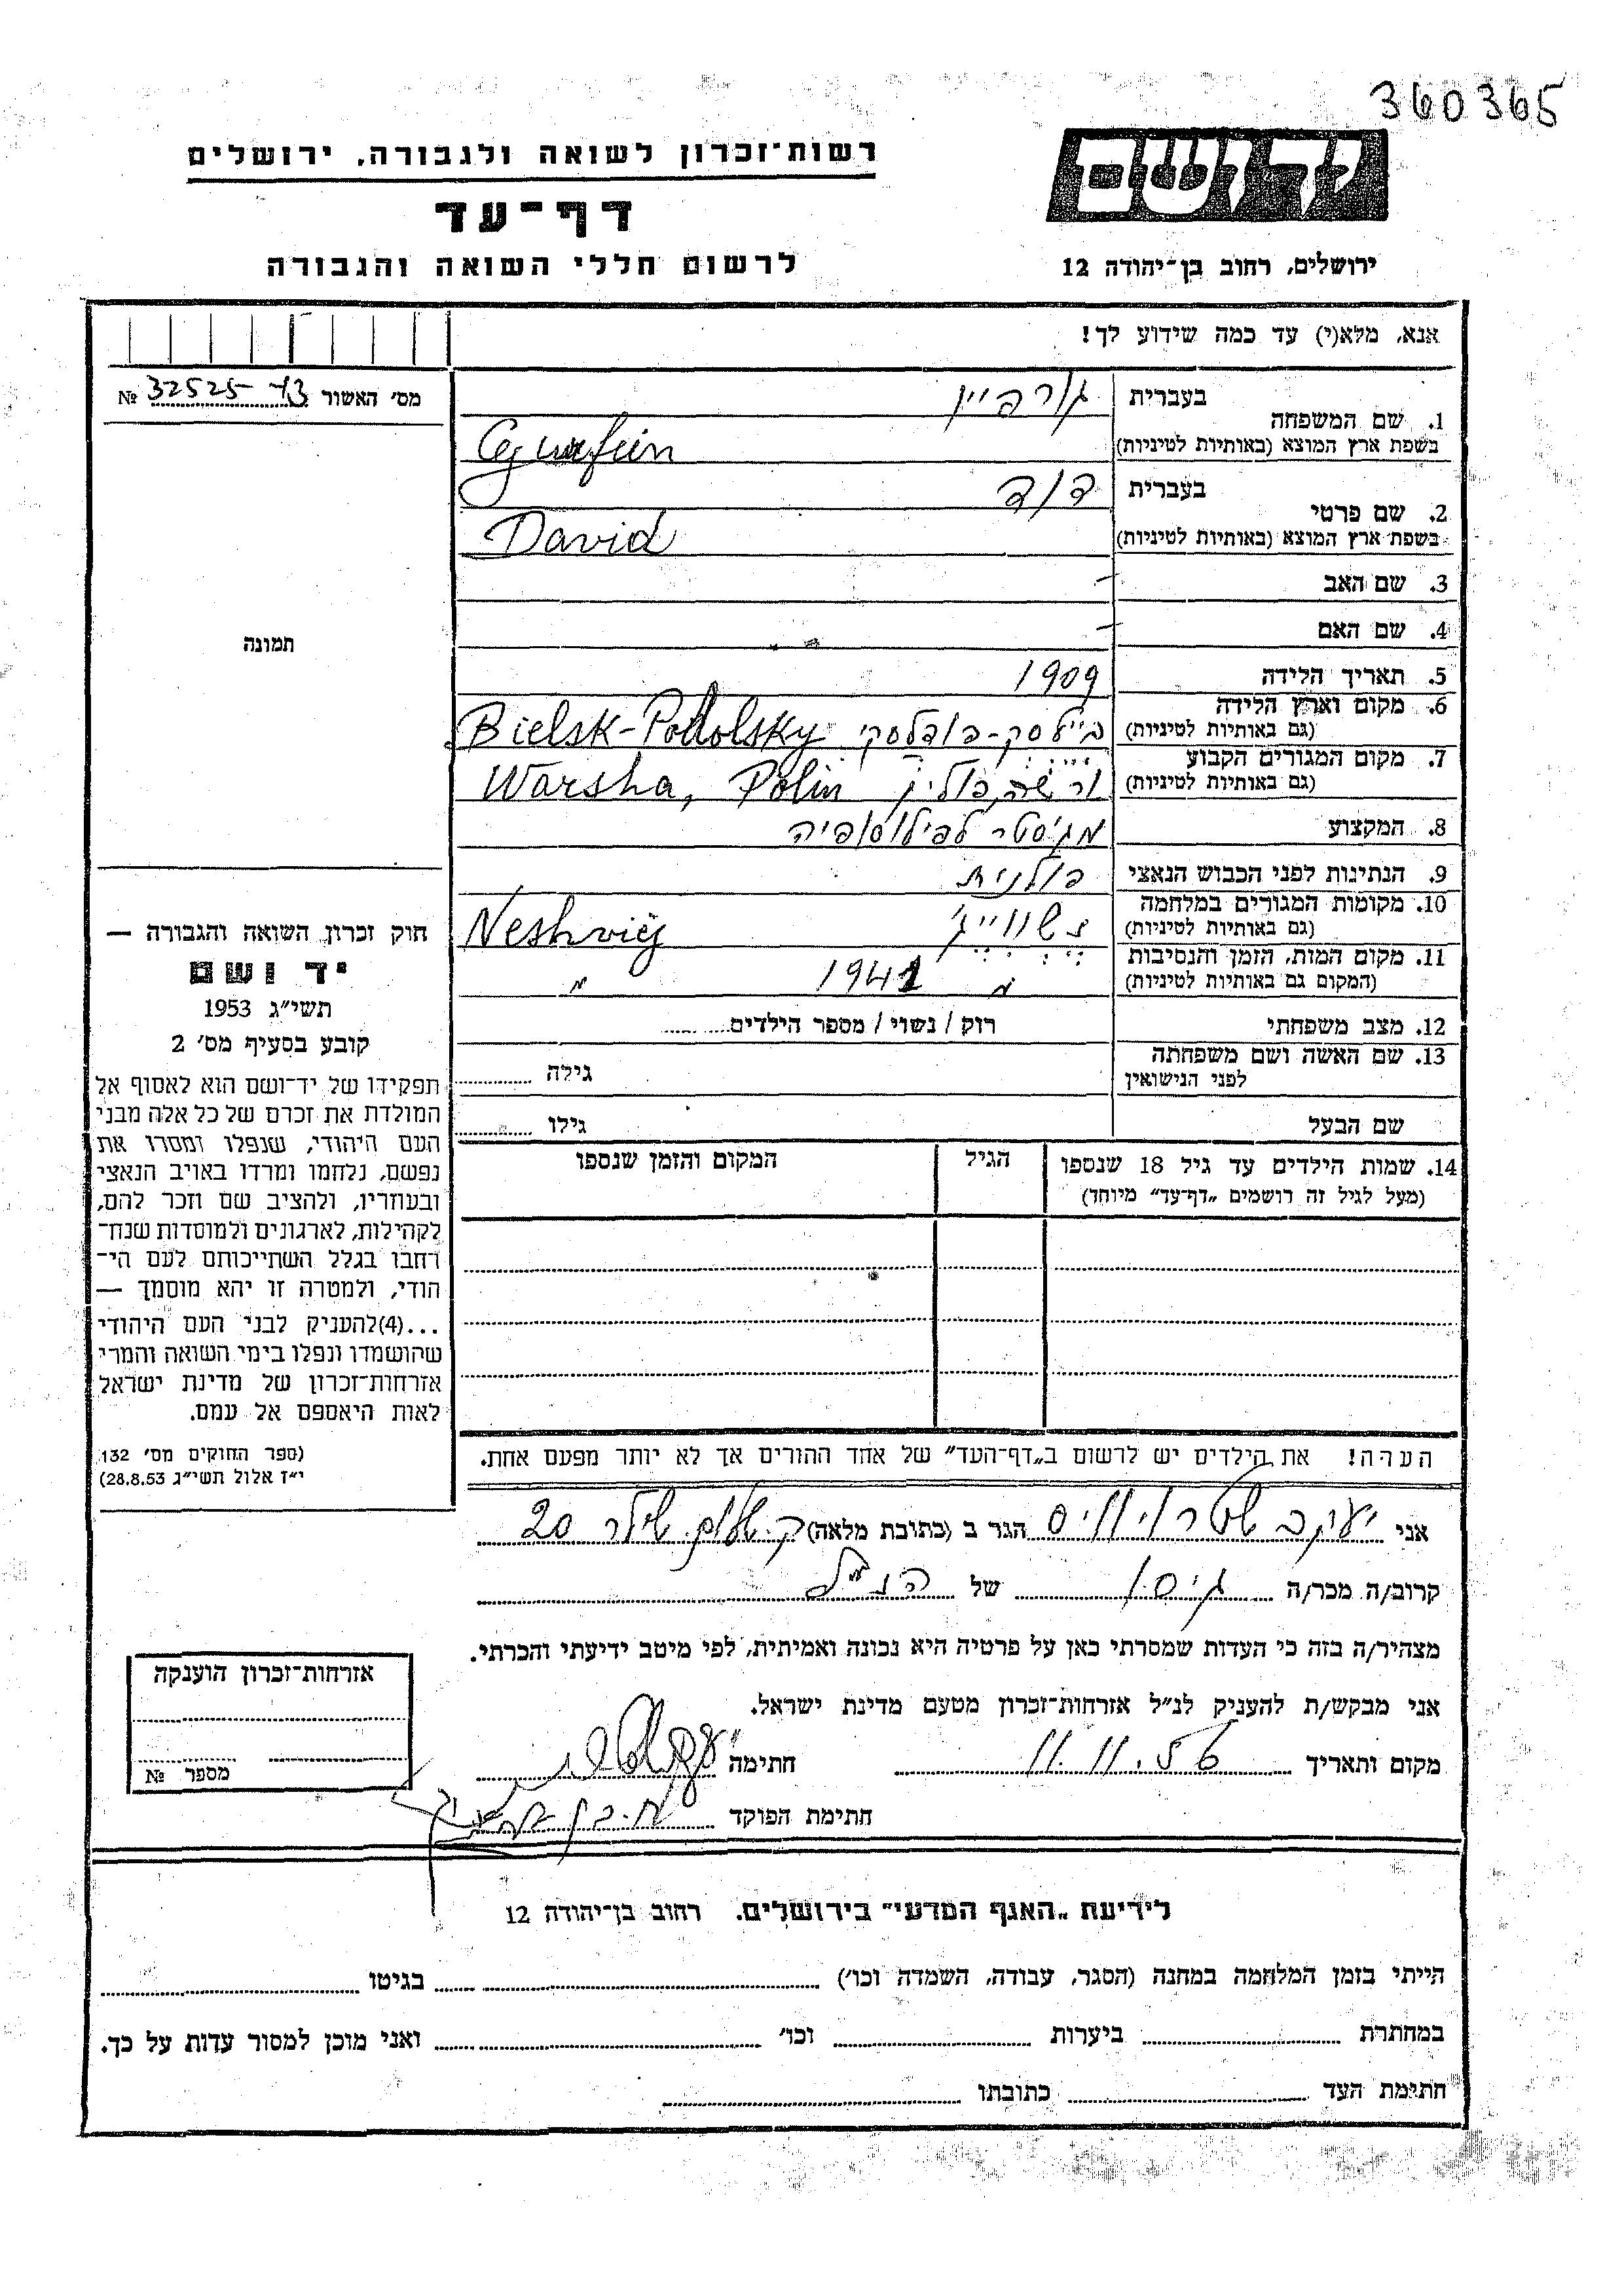 360365
רשות־זכרון לשואה ולגבורה, ירושלים
יד ושם
דף־עד
לרשום חללי השואה והגבורה
ירושלים, רחוב בן־יהודה 12
אנא, מלא(י) עד כמה שידוע לך!
מס׳ האשור № 32525
1. שם המשפחה
בעברית גורפיין
בשפת ארץ המוצא (באותיות לטיניות) Gurfein
2. שם פרטי
בעברית דוד
בשפת ארץ המוצא (באותיות לטיניות) David
3. שם האב –
4. שם האם –
תמונה
5. תאריך הלידה 1909
6. מקום וארץ הלידה
(גם באותיות לטיניות) בײלסק-פודולסקי Bielsk-Podolsky
7. מקום המגורים הקבוע
(גם באותיות לטיניות) ורשה, פולין Warsha, Polin
8. המקצוע מגיסטר לפילוסופיה
9. הנתינות לפני הכבוש הנאצי פולנית
10. מקומות המגורים במלחמה
(גם באותיות לטיניות) נשוויג׳ Neshvig
11. מקום המות, הזמן והנסיבות
(המקום גם באותיות לטיניות) 1941
12. מצב משפחתי רוק / נשוי / מספר הילדים
13. שם האשה ושם משפחתה
לפני הנישואין גילה
שם הבעל גילו
14. שמות הילדים עד גיל 18 שנספו
(מעל לגיל זה רושמים „דף־עד״ מיוחד)
הגיל
המקום והזמן שנספו
חוק זכרון השואה והגבורה —
יד ושם
תשי״ג 1953
קובע בסעיף מס׳ 2
תפקידו של יד־ושם הוא לאסוף אל
המולדת את זכרם של כל אלה מבני
העם היהודי, שנפלו ומסרו את
נפשם, נלחמו ומרדו באויב הנאצי
ובעוזריו, ולהציב שם וזכר להם,
לקהילות, לארגונים ולמוסדות שנח־
רחבו בגלל השתייכותם לעם הי־
הודי, ולמטרה זו יהא מוסמך —
...(4)להעניק לבני העם היהודי
שהושמדו ונפלו בימי השואה והמרי
אזרחות־זכרון של מדינת ישראל
לאות היאספם אל עמם.
(ספר החוקים מס׳ 132
י״ז אלול תשי״ג 28.8.53)
הערה! את הילדים יש לרשום ב„דף־העד״ של אחד ההורים אך לא יותר מפעם אחת.
אני יעקב הגר ב (כתובת מלאה) 20
קרוב/ה מכר/ה גיסו של הנ״ל
מצהיר/ה בזה כי העדות שמסרתי כאן על פרטיה היא נכונה ואמיתית, לפי מיטב ידיעתי והכרתי.
אני מבקש/ת להעניק לנ״ל אזרחות־זכרון מטעם מדינת ישראל.
מקום ותאריך 11.11.56 חתימה
חתימת הפוקד
אזרחות־זכרון הוענקה
מספר №
לידיעת „האגף המדעי״ בירושלים. רחוב בן־יהודה 12
הייתי בזמן המלחמה במחנה (הסגר, עבודה, השמדה וכו׳) בגיטו
במחתרת ביערות וכו׳ ואני מוכן למסור עדות על כך.
חתימת העד כתובתו